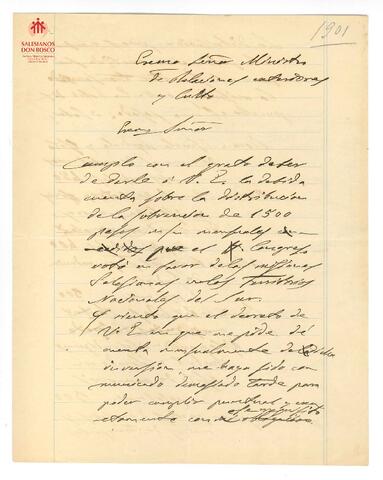 SALESIANOS
DON BOSCO
1901
Exmo Señor Ministro
de Relaciones exteriores
y Culto
Exmo Señor
Cumplo con el grato deber
de darle á V. E. la debida
cuenta sobre la distribucion
de la subvencion de 1500
pesos m/n mensuales
que el H. Congreso
votó en favor de las misiones
Salesianas en los Territorios
Nacionales del Sur.
Y siento que el decreto de
V. E. en que me pide dé
cuenta mensualmente de
inversión, me haya sido co
municado demasiado tarde para
poder cumplir puntual y exac
tamente con